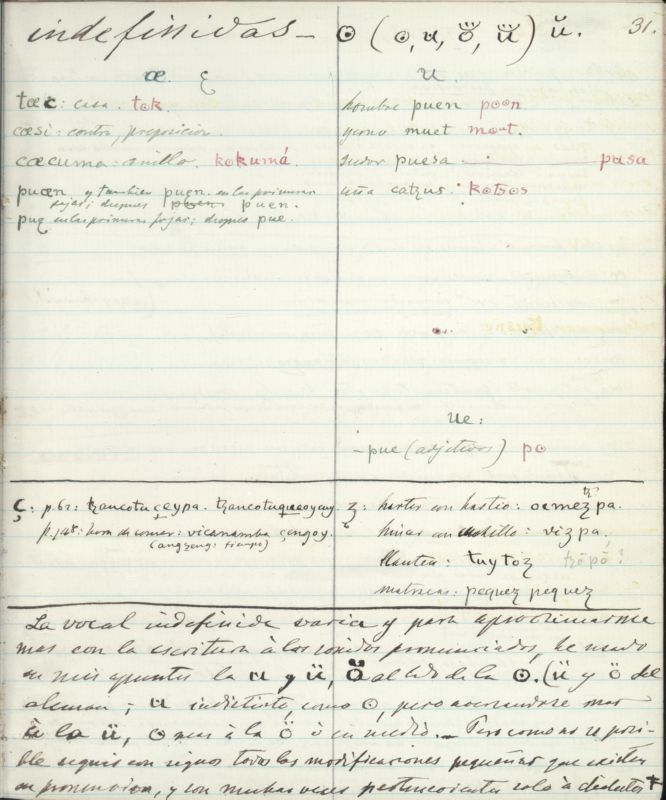 indefinidas – ʘ (ʘ, u, ö, ü) ŭ. 31.
æ. ę u.
tæc: casa. tʘk.
cæsi: contra, preposicion.
cæcuma: anillo. kʘkumá.
puæn. y tambien puęn. en las primeras
fojas; despues puen.
puę en las primeras fojas; despues pue.
hombre puen pʘʘn
yerno muet mʘʘt.
sudor puesa pusa
uña catzus. kʘtsʘs
ue:
– pue (adjetivos) pʘ
ç: p. 62:
p. 148: hora de comer: vicanamba çengoy.
ʒ: hartar con hastio: ocmeʒpa.
con cuchillo: viʒpa,
tuytoʒ tzöpö?
pequeʒ pequeʒ
La vocal indefinida varia y para aproximarme
mas con la escritura à los sonidos pronunciados, he usado
en mis apuntes la u y ü, ö al lado de la ʘ. (ü y ö del
aleman; u indistinto, como ʘ, pero acercandose mas
à la ü, ʘ mas à la ö ó en medio. – Pero como no se posi-
ble seguir con signos todas las modificaciones pequeñas que existen
en pronunciar, y son muchas veces pertenecientes solo à dialectos